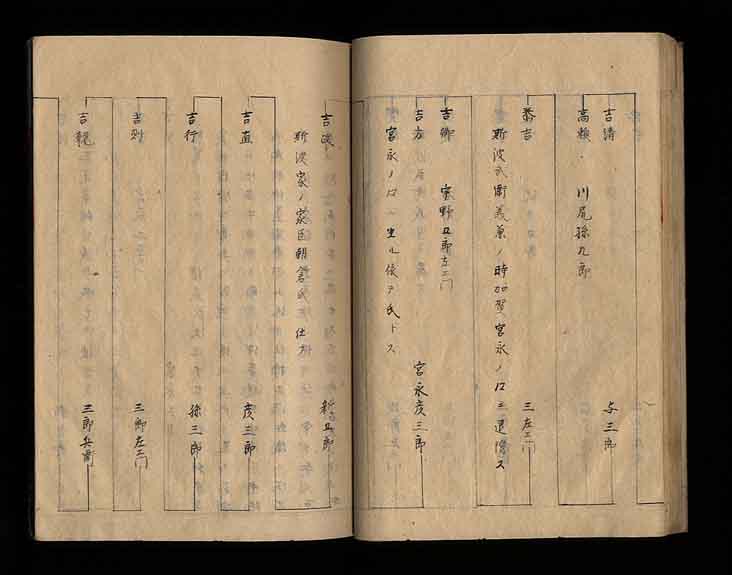 吉清 与三郎
高頼 川尻孫九郎
泰吉 三左エ門
斯波武衛義兼ノ時加賀宮永ノ口ニ退隠ス
吉郷 窪野五郎左エ門
吉方 宮永彦三郎
宮永ノ口ニ生ル依テ氏トス
吉茂 新五郎
斯波家ノ家臣朝倉氏仕
吉直 彦三郎
吉行 孫三郎
吉則 三郎左エ門
吉親 三郎兵衛